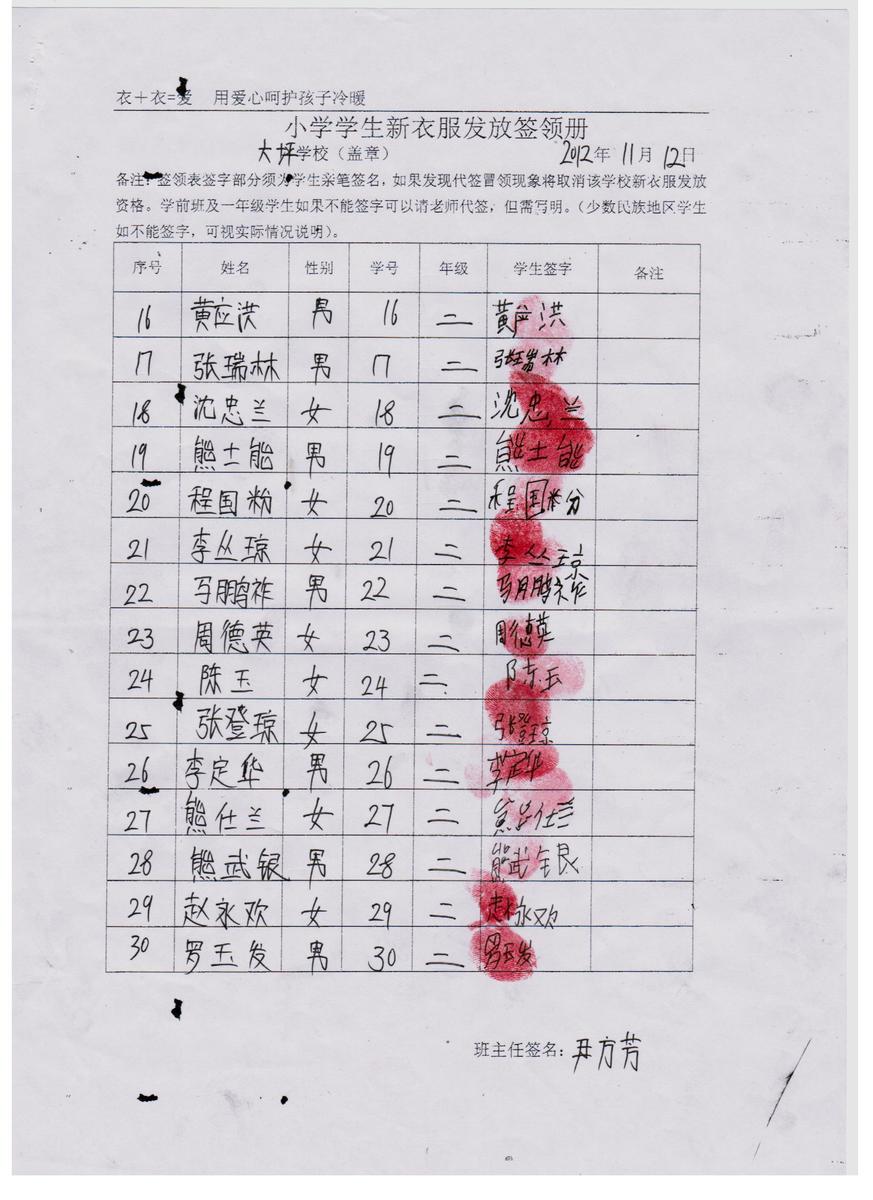 衣+衣=爱 用爱心呵护孩子冷暖
小学学生新衣服发放签领册
大坪学校（盖章） 2012年 11月 12日
备注：签领表签字部分须为学生亲笔签名，如果发现代签冒领现象将取消该学校新衣服发放
资格。学前班及一年级学生如果不能签字可以请老师代签，但需写明。（少数民族地区学生
如不能签字，可视实际情况说明）。
序号 姓名 性别 学号 年级 学生签字 备注
16 黄应洪 男 16 二 黄应洪
17 张瑞林 男 17 二 张瑞林
18 沈忠兰 女 18 二 沈忠兰
19 熊士能 男 19 二 熊士能
20 程国粉 女 20 二 程国粉
21 李丛琼 女 21 二 李丛琼
22 马鹏祚 男 22 二 马鹏祚
23 周德英 女 23 二 周德英
24 陈玉 女 24 二 陈玉
25 张登琼 女 25 二 张登琼
26 李定华 男 26 二 李定华
27 熊仕兰 女 27 二 熊仕兰
28 熊武银 男 28 二 熊武银
29 赵永欢 女 29 二 赵永欢
30 罗玉发 男 30 二 罗玉发
班主任签名：尹方芳